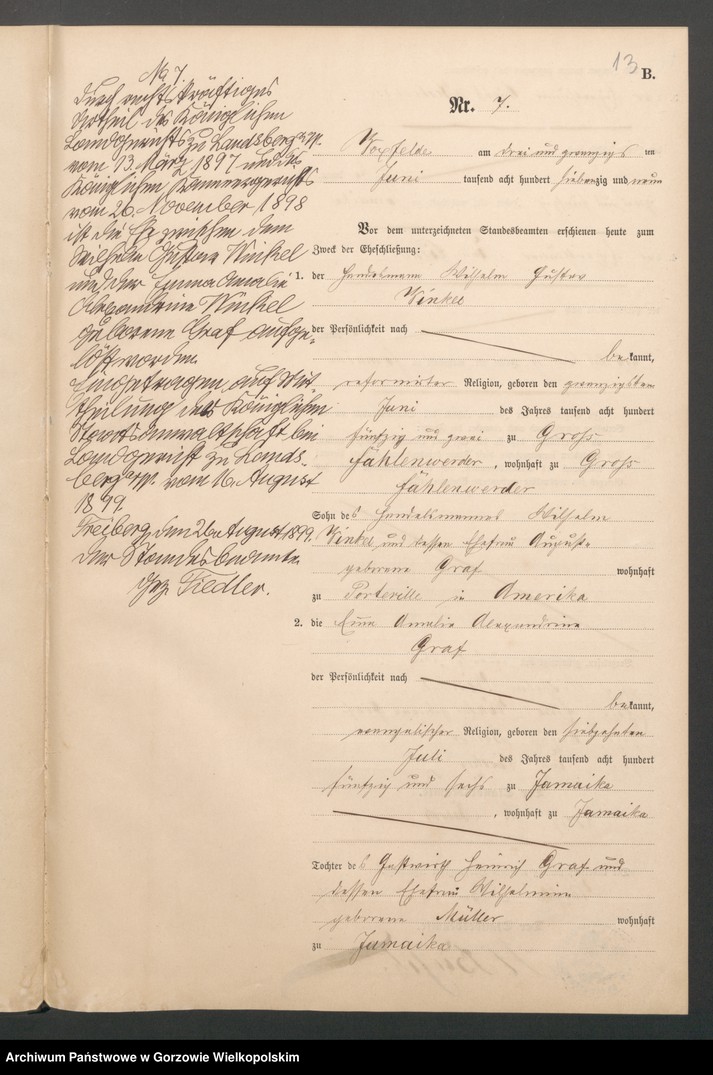 13
B.
Nr. 7.
No 7
Durch rechtskräftiges
Urtheil des Königlichen
Landgerichts zu Landsberg a/W.
vom 13. März 1897 und des
Königlichen Kammergerichts
vom 26. November 1898
ist die Ehe zwischen dem
Wilhelm Gustav Winkel
und der Emma Amalie
Alexandrine Winkel
geborene Graf aufge-
löst worden.
Eingetragen auf Mit-
theilung der Königlichen
Staatsanwaltschaft bei
Landgericht zu Lands-
berg a/W. vom 16. August
1899.
Freiberg, den 26. August 1899.
Der Standesbeamte
gez. Fiedler.
am drei und zwanzigs ten
Juni tausend acht hundert siebenzig und neun
Vor dem unterzeichneten Standesbeamten erschienen heute zum
Zweck der Eheschließung:
1. der Handelsmann Wilhelm Gustav
Winkel
der Persönlichkeit nach
bekannt,
reformirter Religion, geboren den zwanzigsten
Juni des Jahres tausend acht hundert
fünfzig und zwei zu Groß
Fahlenwerder, wohnhaft zu Groß
Fahlenwerder
Sohn des Handelsmannes Wilhelm
Winkel und dessen Ehefrau Auguste
geborene Graf wohnhaft
zu Porteville in Amerika
2. die Amalie Alexandrine
Graf
der Persönlichkeit nach
bekannt,
evangelischer Religion, geboren den siebzehnten
Juli des Jahres tausend acht hundert
fünfzig und sechs zu Jamaika
, wohnhaft zu Jamaika
Tochter des Gastwirth Heinrich Graf und
dessen Ehefrau Wilhelmine
geborene Müller wohnhaft
zu Jamaika
Archiwum Państwowe w Gorzowie Wielkopolskim